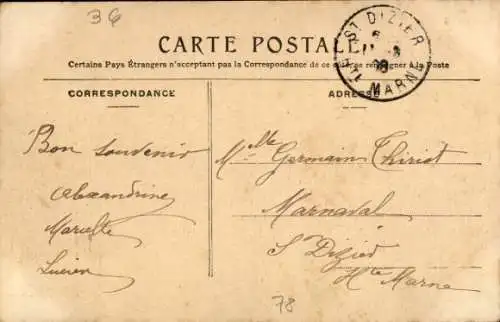 36
ST DIZIER
6
Hte MARNE
CARTE POSTALE
Certains Pays Étrangers n'acceptant pas la Correspondance de ce côté, se renseigner à la Poste
CORRESPONDANCE
ADRESSE
Bon souvenir
Alexandrine
Marcelle
Lucien
Melle Germain Thiriot
Marnaval
St Dizier
Hte Marne
78